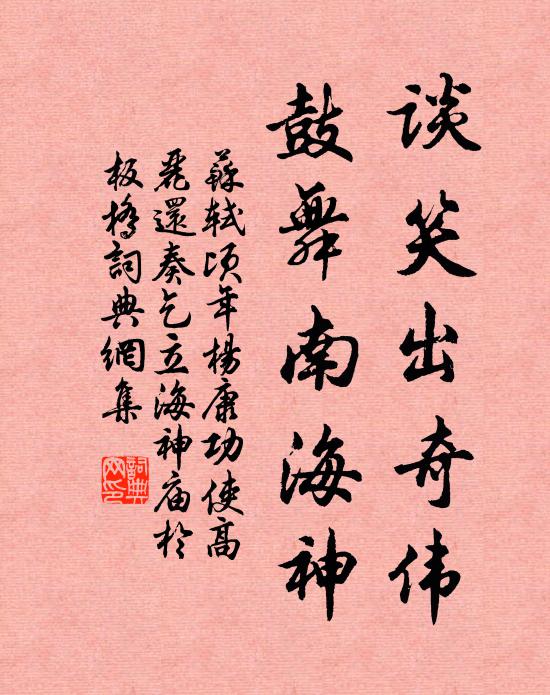 谈笑出奇伟
鼓舞南海神
蘇軾顷年楊康功使高
飛還奏乞立海神庙於
板橋詞典網集
詞典網印